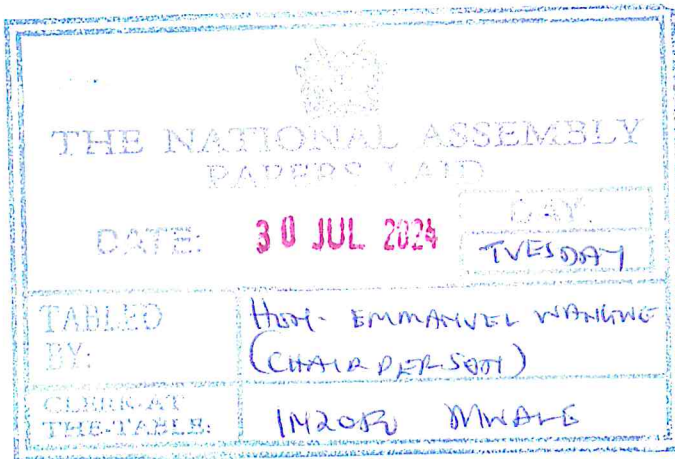 THE NATIONAL ASSEMBLY
PAPERS LAID
DATE: 30 JUL 2024
DAY:
TUESDAY
TABLED BY:
HON. EMMANUEL WANGWE
(CHAIRPERSON)
CLERK-AT
THE-TABLE:
INZOFU MWALE